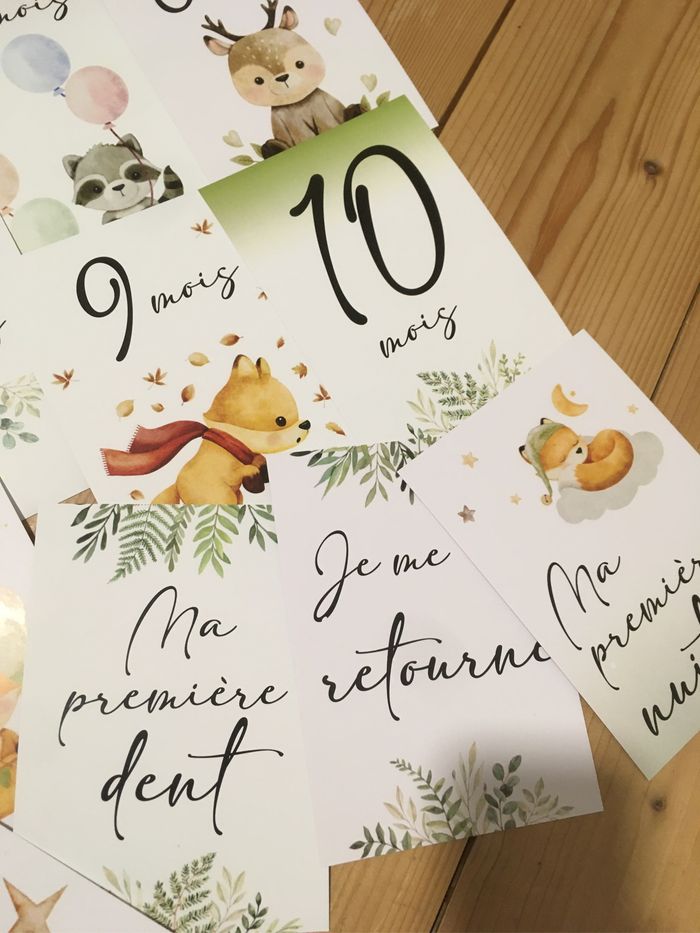 mois
9 mois
10
mois
Ma
première
dent
Je me
retourne
Ma
première
nuit